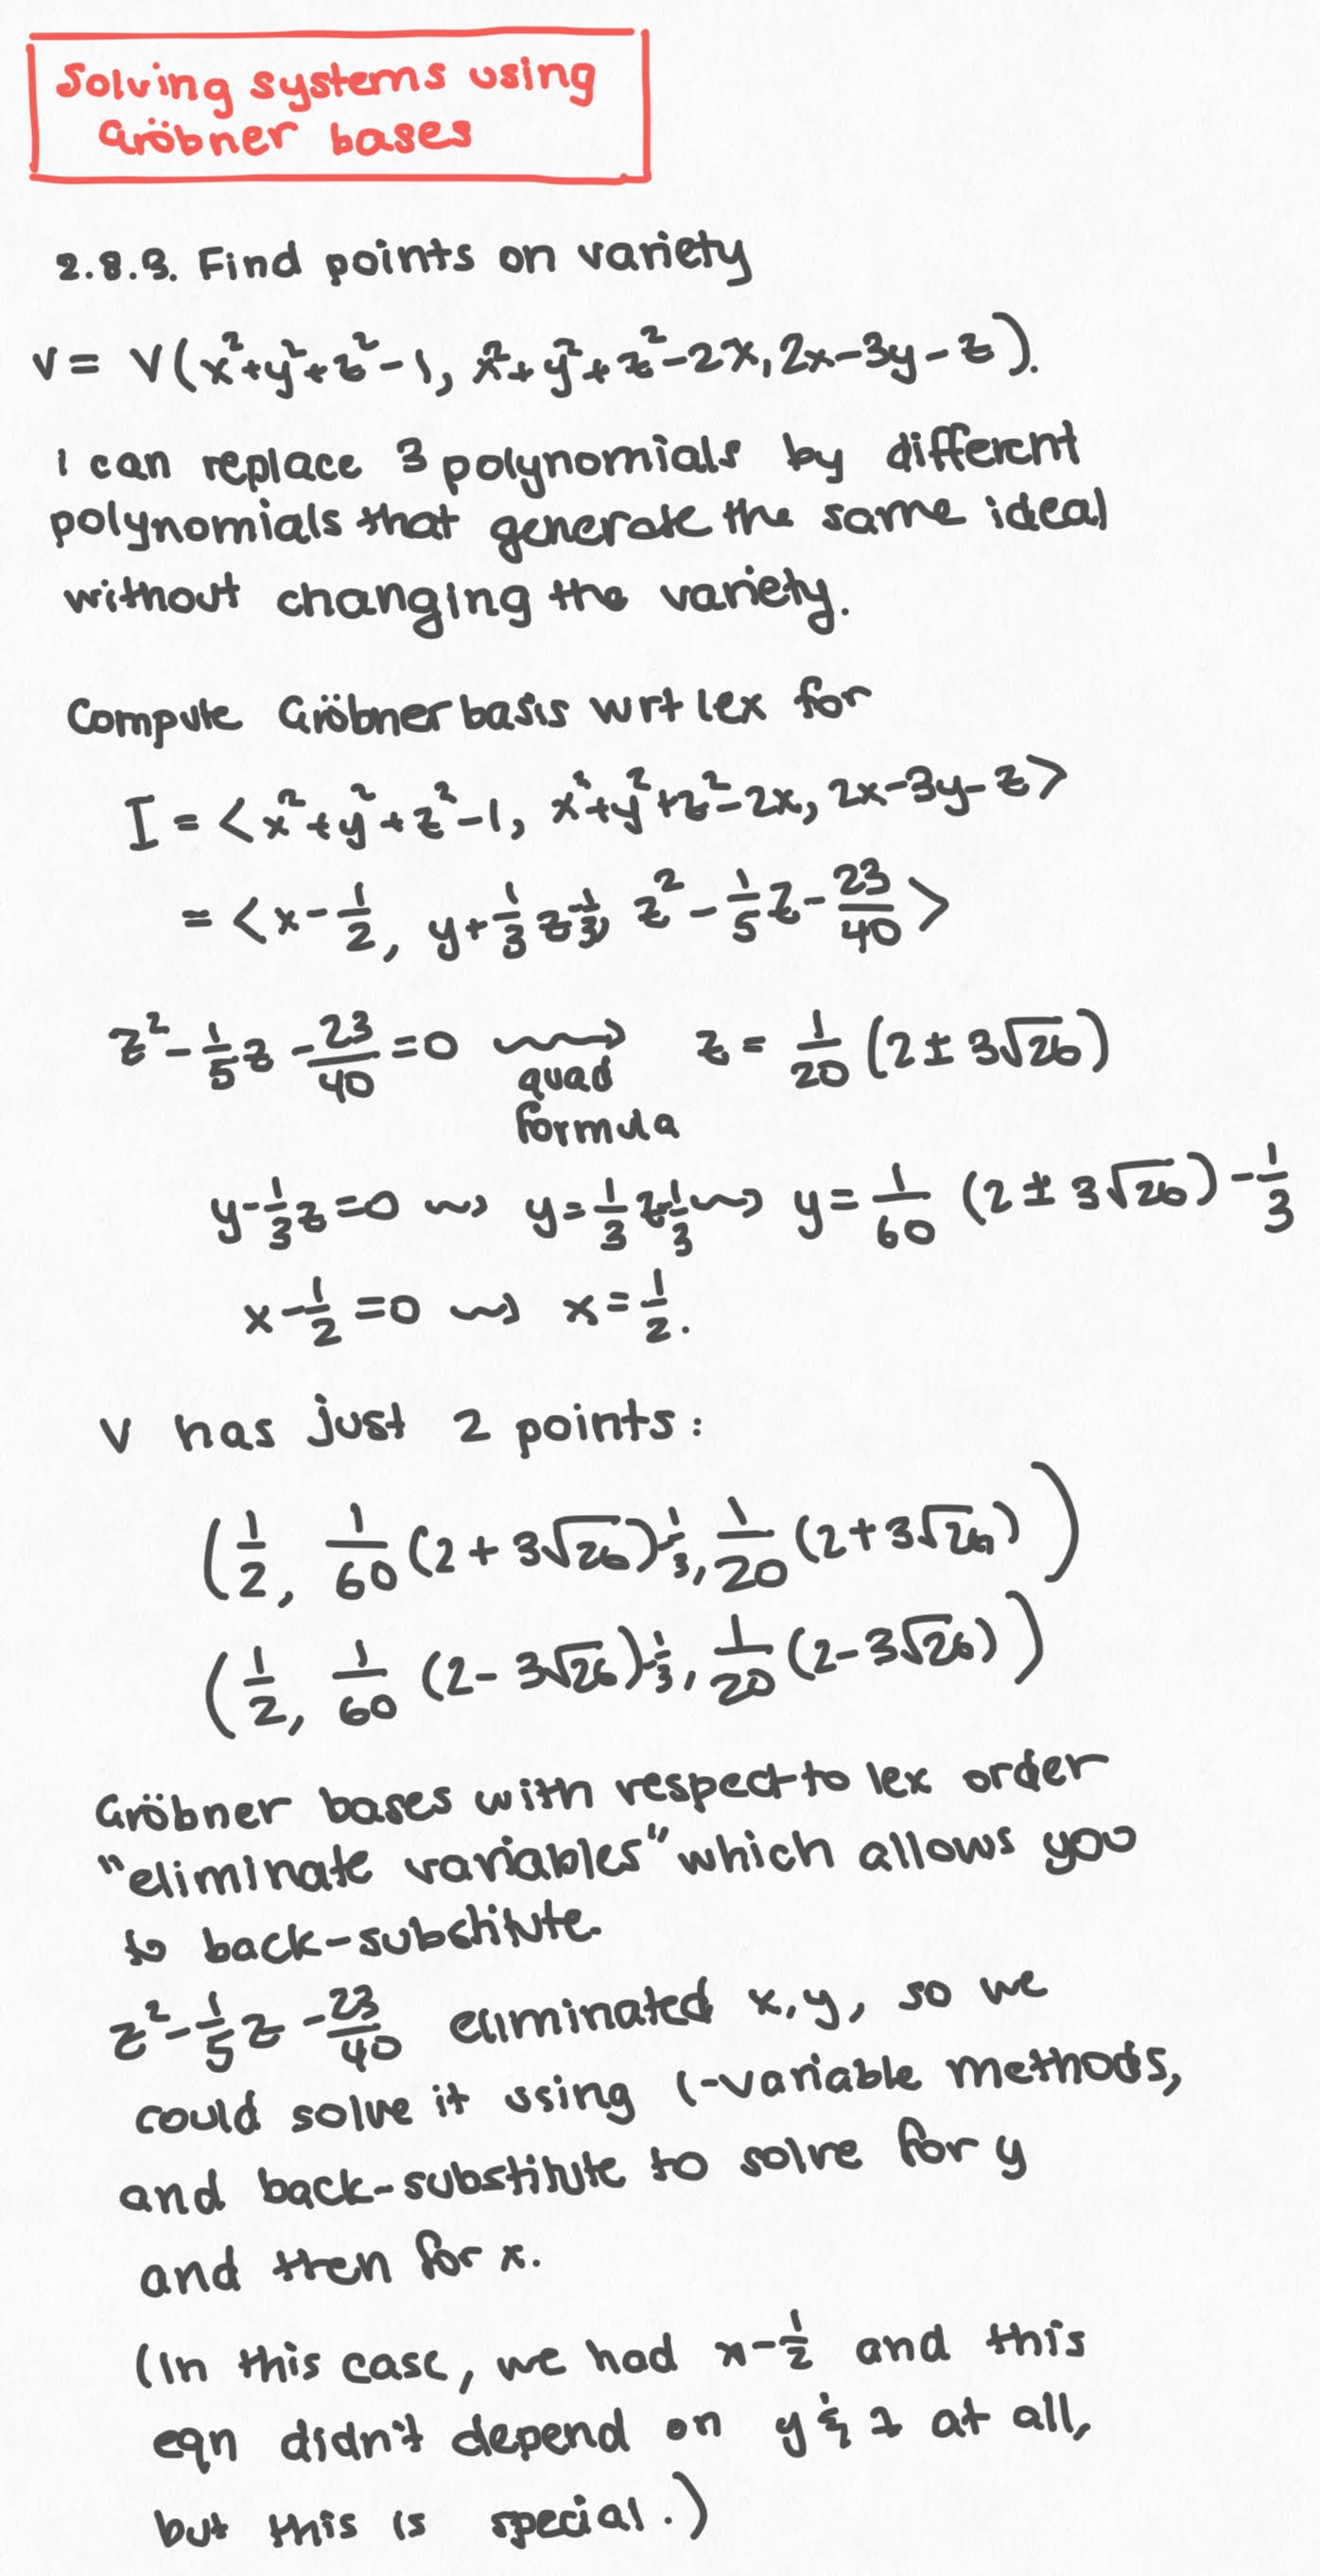 Solving systems using
Gröbner bases
2.8.3. Find points on variety
V = V(x²+y²+z²-1, x²+y²+z²-2x, 2x-3y-z).
I can replace 3 polynomials by different
polynomials that generate the same ideal
without changing the variety.
Compute Gröbner basis wrt lex for
I = <x²+y²+z²-1, x²+y²+z²-2x, 2x-3y-z>
= <x-1/2, y+1/3 z-1/3, z²-1/5 z-23/40>
z²-1/5 z-23/40=0 ⟿ z = 1/20 (2±3√26)
quad
formula
y-1/3 z=0 ⇝ y=1/3 z-1/3 ⇝ y=1/60 (2±3√26)-1/3
x-1/2=0 ⇝ x=1/2.
V has just 2 points:
(1/2, 1/60(2+3√26)-1/3, 1/20(2+3√26))
(1/2, 1/60(2-3√26)-1/3, 1/20(2-3√26))
Gröbner bases with respect to lex order
"eliminate variables" which allows you
to back-substitute.
z²-1/5 z-23/40 eliminated x,y, so we
could solve it using 1-variable methods,
and back-substitute to solve for y
and then for x.
(In this case, we had x-1/2 and this
eqn didn't depend on y & z at all,
but this is special.)